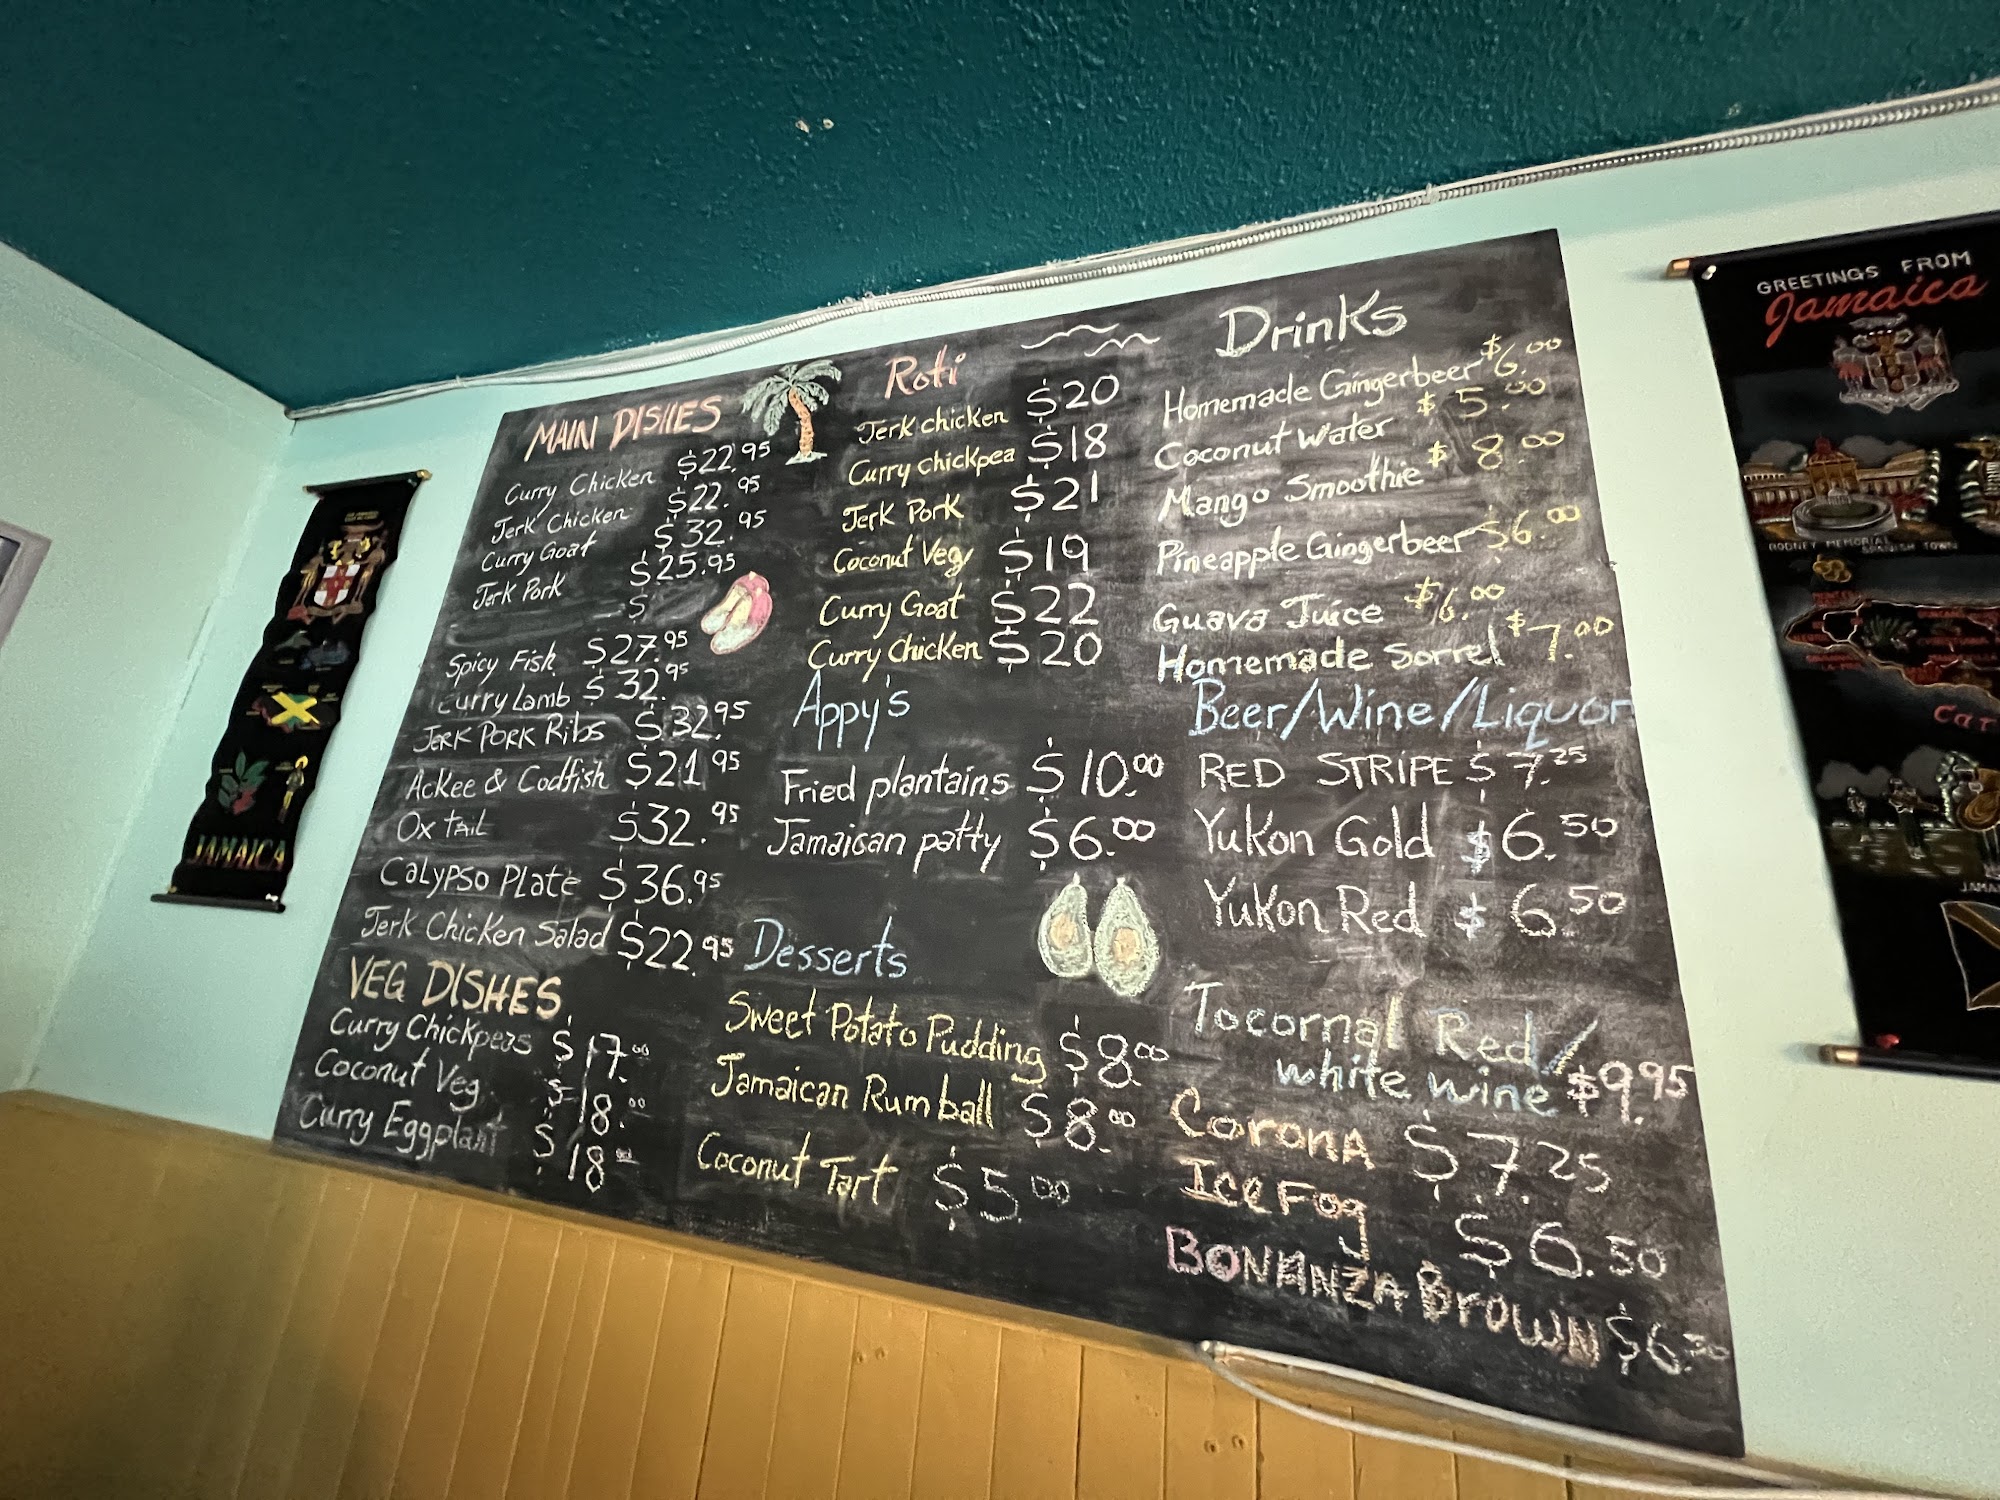 MAIN DISHES
Curry Chicken $22.95
Jerk Chicken $22.95
Curry Goat $32.95
Jerk Pork $25.95
$
Spicy Fish $27.95
Curry Lamb $32.95
Jerk Pork Ribs $32.95
Ackee & Codfish $21.95
Ox tail $32.95
Calypso Plate $36.95
Jerk Chicken Salad $22.95
VEG DISHES
Curry Chickpeas $17.00
Coconut Veg. $18.00
Curry Eggplant $18.00
Roti
Jerk chicken $20
Curry chickpea $18
Jerk Pork $21
Coconut Veg $19
Curry Goat $22
Curry Chicken $20
Appy's
Fried plantains $10.00
Jamaican patty $6.00
Desserts
Sweet Potato Pudding $8.00
Jamaican Rum ball $8.00
Coconut Tart $5.00
Drinks
Homemade Gingerbeer $6.00
Coconut Water $5.00
Mango Smoothie $8.00
Pineapple Gingerbeer $6.00
Guava Juice $6.00
Homemade Sorrel $7.00
Beer/Wine/Liquor
RED STRIPE $7.25
Yukon Gold $6.50
Yukon Red $6.50
Tocornal Red/
white wine $9.95
Corona $7.25
Ice Fog $6.50
BONANZA BROWN $6.50
JAMAICA
GREETINGS FROM
Jamaica
RODNEY MEMORIAL
SPANISH TOWN